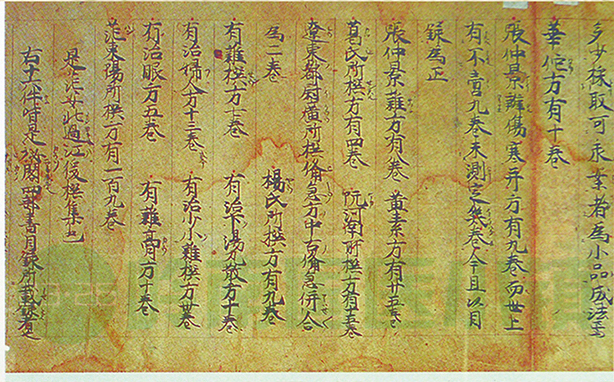 多少採取可承筆者為小品成法焉
華佗方有十卷
張仲景辨傷寒并方有九卷而世上
有不啻九卷未測定幾卷今且以目
錄為正
張仲景雜方有八卷 黃素方有廿五卷
葛氏所撰方有四卷 阮河南所撰方有十五卷
遼東都尉廣所撰備急方中古備急併合
為二卷 楊氏所撰方有九卷
有雜撰方七卷 有治下湯丸散方十卷
有治婦人方十三卷 有治少小雜撰方卅卷
有治眼方五卷 有雜膏方十卷
范東陽所撰方有一百九卷
是范安北過江後撰集也
右十六件皆是秘閣四部書目錄所載錄者也